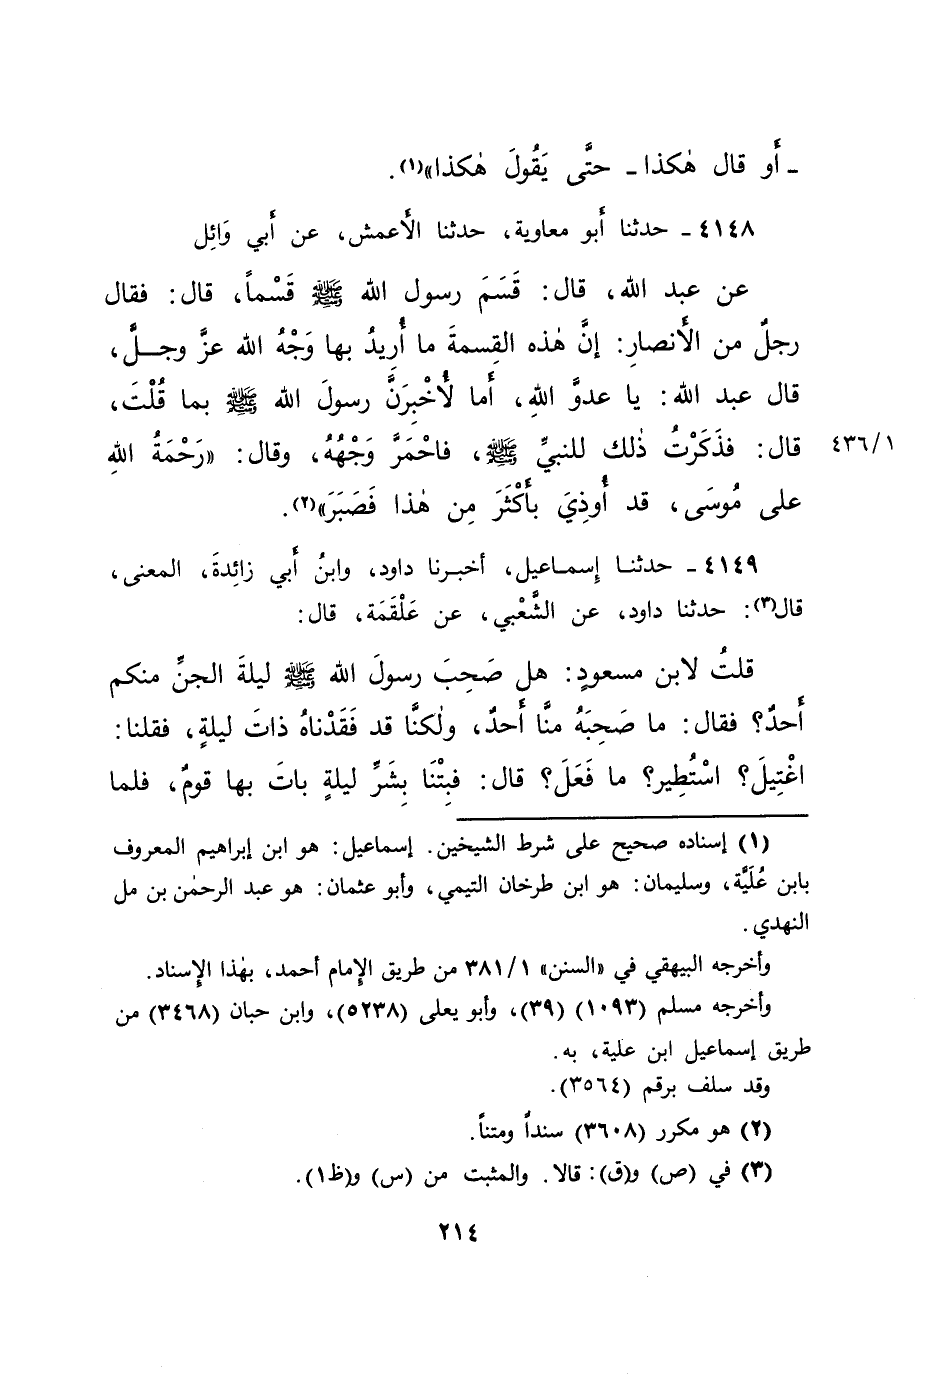 ـ أَو قال هٰكذا ـ حتَّى يَقُولَ هٰكذا»(١).
٤١٤٨ ـ حدثنا أَبو معاوية، حدثنا الأَعمش، عن أَبي وَائِل
عن عبد الله، قال: قَسَمَ رسول الله ﷺ قَسْماً، قال: فقال
رجلٌ من الأَنصارِ: إنَّ هٰذه القِسمةَ ما أُرِيدُ بها وَجْهُ الله عزَّ وجـلَّ،
قال عبد الله: يا عدوَّ اللهِ، أَما لَأُخْبِرَنَّ رسولَ الله ﷺ بما قُلْتَ،
قال: فذَكَرْتُ ذٰلك للنبيِّ ﷺ، فاحْمَرَّ وَجْهُهُ، وقال: «رَحْمَةُ اللهِ
٤٣٦/١
على مُوسَى، قد أُوذِيَ بأَكْثَرَ مِن هٰذا فَصَبَرَ»(٢).
٤١٤٩ ـ حدثنـا إسمـاعيل، أخبـرنا داود، وابنُ أَبي زائِدةَ، المعنى،
قال(٣): حدثنا داود، عن الشَّعْبي، عن عَلْقَمَة، قال:
قلتُ لابن مسعودٍ: هل صَحِبَ رسولَ الله ﷺ ليلةَ الجنِّ منكم
أَحدٌ؟ فقال: ما صَحِبَهُ منَّا أَحدٌ، ولٰكنَّا قد فَقَدْناهُ ذاتَ ليلةٍ، فقلنا:
اغْتِيلَ؟ اسْتُطِير؟ ما فَعَلَ؟ قال: فبِتْنَا بِشَرِّ ليلةٍ باتَ بها قومٌ، فلما
(١) إسناده صحيح على شرط الشيخين. إسماعيل: هو ابن إبراهيم المعروف
بابن عُلَيَّة، وسليمان: هو ابن طرخان التيمي، وأبو عثمان: هو عبد الرحمٰن بن مل
النهدي.
وأخرجه البيهقي في «السنن» ٣٨١/١ من طريق الإمام أحمد، بهٰذا الإسناد.
وأخرجه مسلم (١٠٩٣) (٣٩)، وأبو يعلى (٥٢٣٨)، وابن حبان (٣٤٦٨) من
طريق إسماعيل ابن علية، به.
وقد سلف برقم (٣٥٦٤).
(٢) هو مكرر (٣٦٠٨) سنداً ومتناً.
(٣) في (ص) و(ق): قالا. والمثبت من (س) و(ظ١).
٢١٤